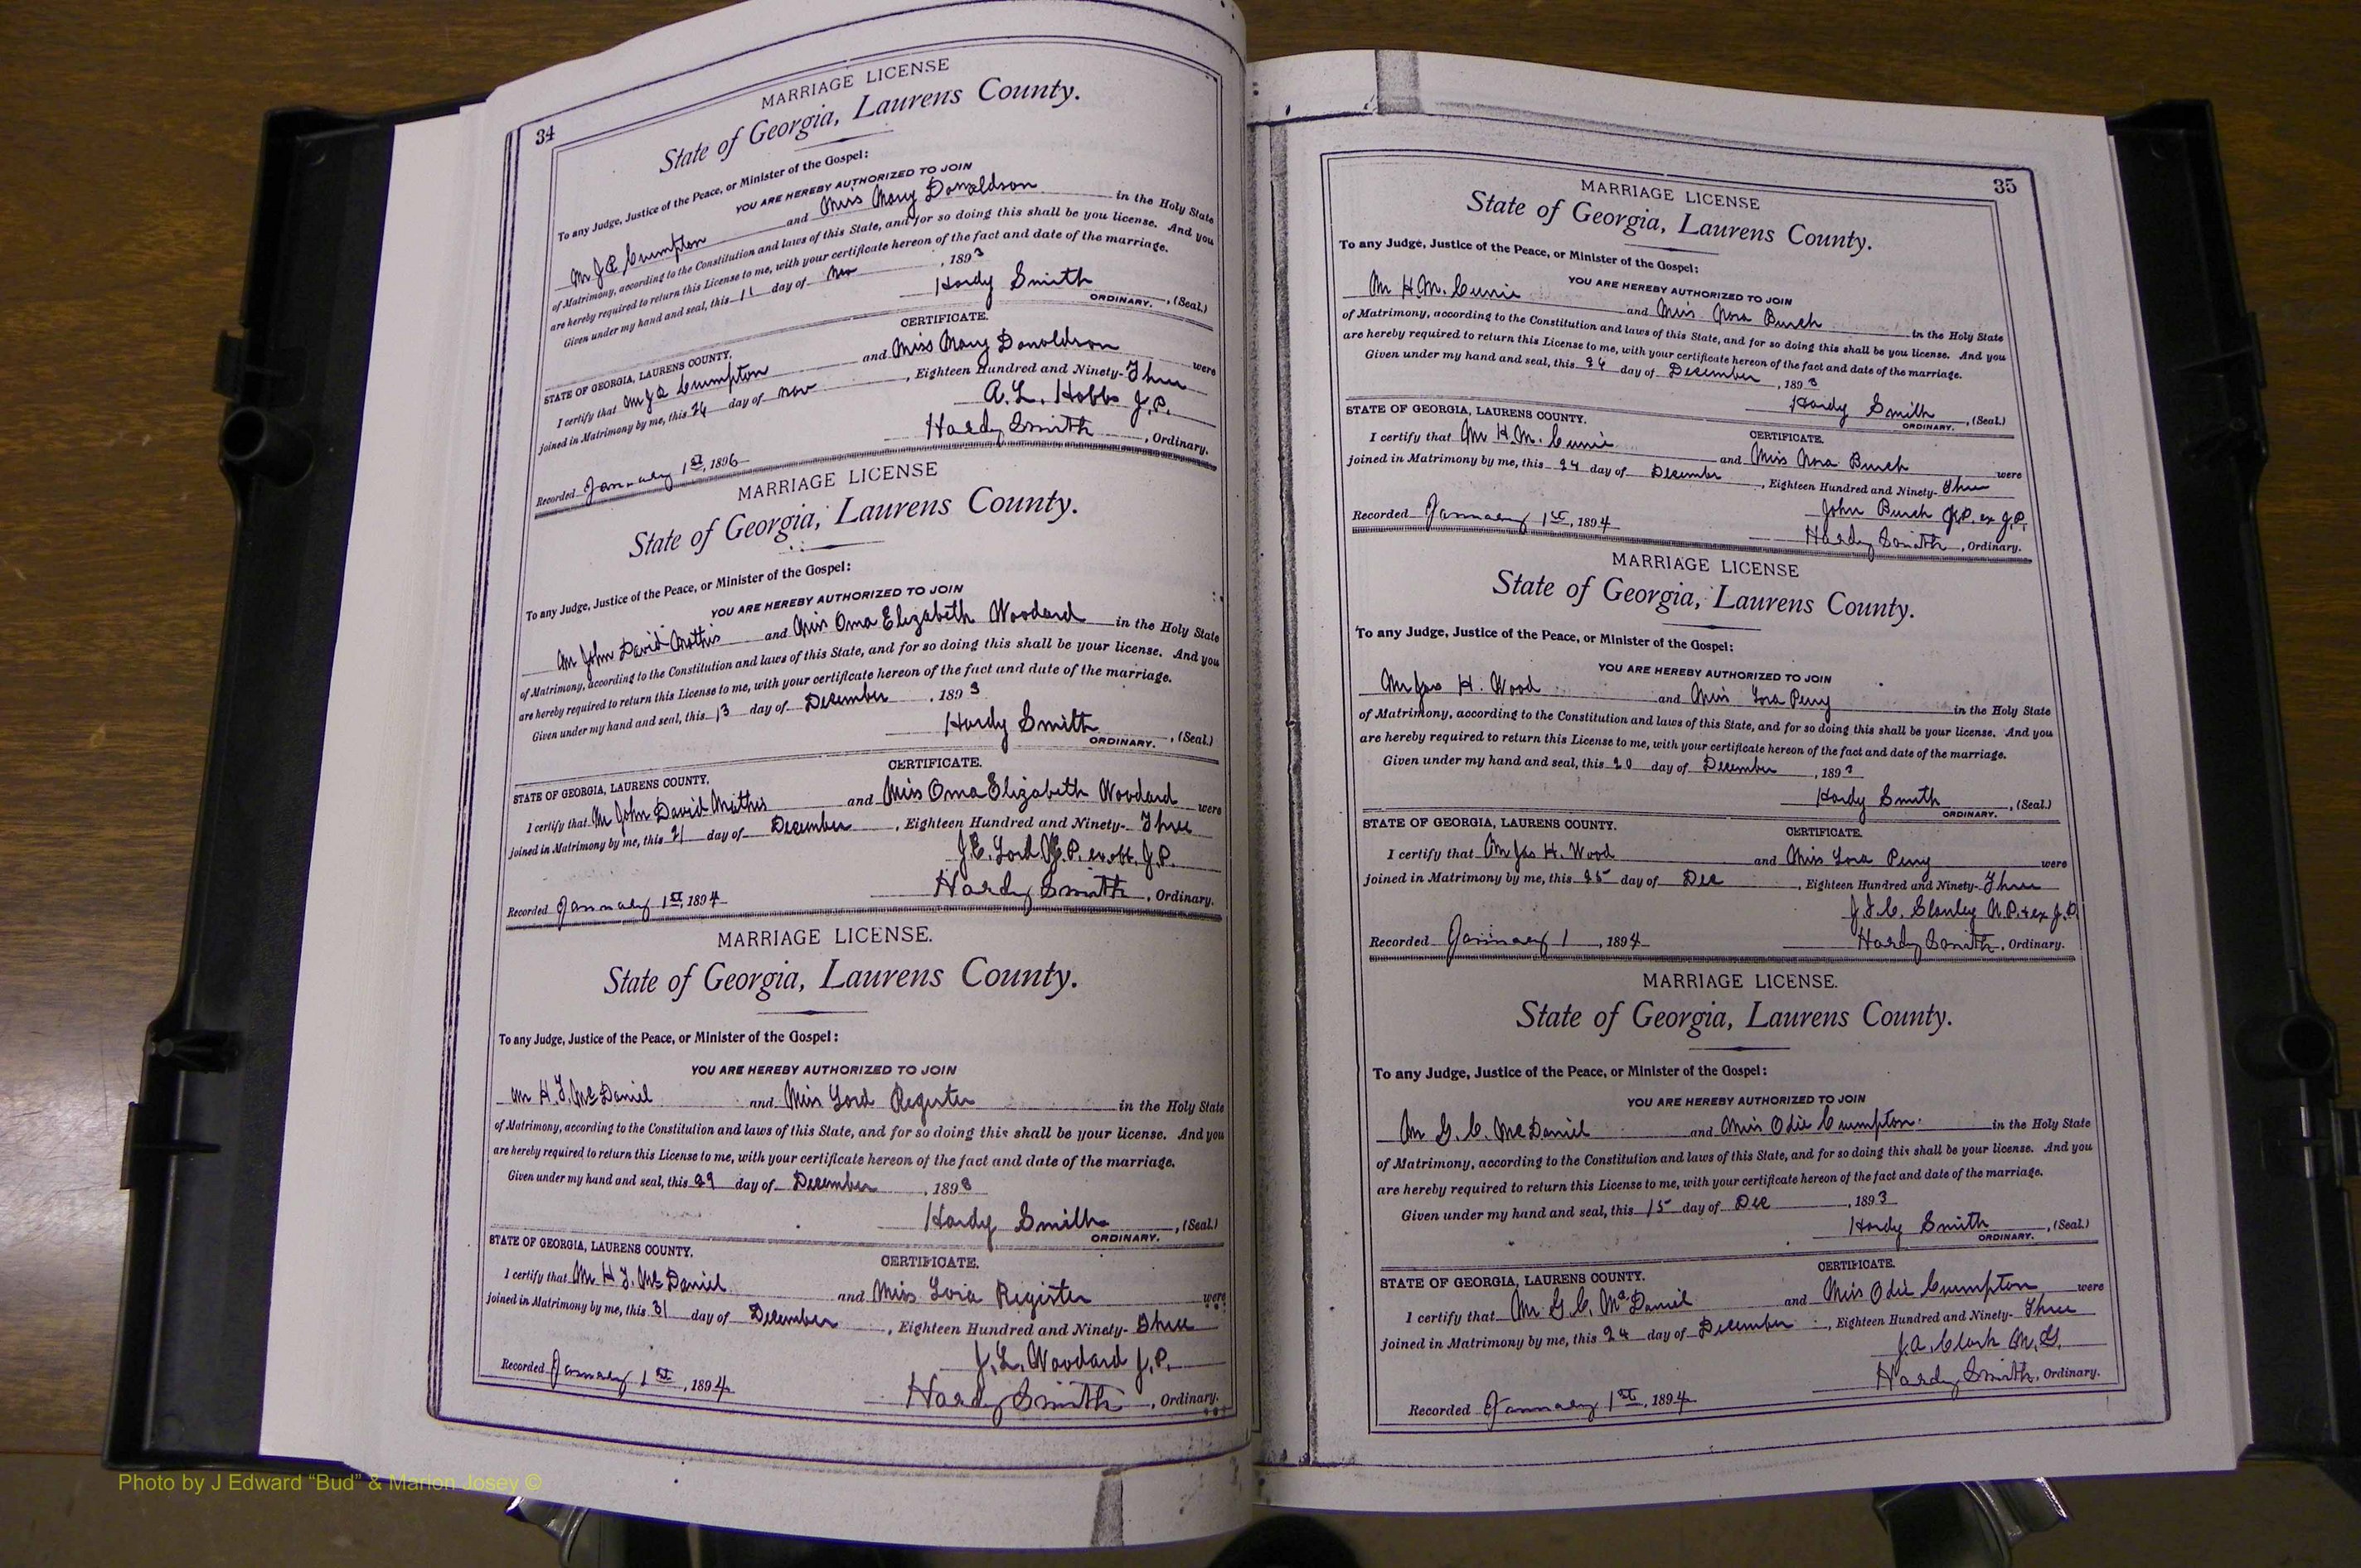 34
MARRIAGE LICENSE
State of Georgia, Laurens County.
To any Judge, Justice of the Peace, or Minister of the Gospel:
YOU ARE HEREBY AUTHORIZED TO JOIN
Mr J Crumpton and Miss Mary Donaldson in the Holy State
of Matrimony, according to the Constitution and laws of this State, and for so doing this shall be you license. And you
are hereby required to return this License to me, with your certificate hereon of the fact and date of the marriage.
Given under my hand and seal, this 11 day of Nov , 1893
Hardy Smith , (Seal.)
ORDINARY.
CERTIFICATE.
STATE OF GEORGIA, LAURENS COUNTY.
I certify that Mr J Crumpton and Miss Mary Donaldson were
joined in Matrimony by me, this 26 day of Nov , Eighteen Hundred and Ninety- Three
A. L. Hobbs J. P.
Recorded January 1st, 1896 Hardy Smith , Ordinary.
MARRIAGE LICENSE
State of Georgia, Laurens County.
To any Judge, Justice of the Peace, or Minister of the Gospel:
YOU ARE HEREBY AUTHORIZED TO JOIN
Mr John David Mathis and Miss Oma Elizabeth Woodard in the Holy State
of Matrimony, according to the Constitution and laws of this State, and for so doing this shall be your license. And you
are hereby required to return this License to me, with your certificate hereon of the fact and date of the marriage.
Given under my hand and seal, this 13 day of December , 1893
Hardy Smith , (Seal.)
ORDINARY.
CERTIFICATE.
STATE OF GEORGIA, LAURENS COUNTY.
I certify that Mr John David Mathis and Miss Oma Elizabeth Woodard were
joined in Matrimony by me, this 21 day of December , Eighteen Hundred and Ninety- Three
J. E. Lord J. P.
Recorded January 1st, 1894 Hardy Smith , Ordinary.
MARRIAGE LICENSE.
State of Georgia, Laurens County.
To any Judge, Justice of the Peace, or Minister of the Gospel:
YOU ARE HEREBY AUTHORIZED TO JOIN
Mr H. T. McDaniel and Miss Register in the Holy State
of Matrimony, according to the Constitution and laws of this State, and for so doing this shall be your license. And you
are hereby required to return this License to me, with your certificate hereon of the fact and date of the marriage.
Given under my hand and seal, this 29 day of December , 1893
Hardy Smith , (Seal.)
ORDINARY.
STATE OF GEORGIA, LAURENS COUNTY. CERTIFICATE.
I certify that Mr H T. McDaniel and Miss Register were
joined in Matrimony by me, this 31 day of December , Eighteen Hundred and Ninety- Three
J. L. Woodard J. P.
Recorded January 1st, 1894 Hardy Smith , Ordinary.
35
MARRIAGE LICENSE
State of Georgia, Laurens County.
To any Judge, Justice of the Peace, or Minister of the Gospel:
YOU ARE HEREBY AUTHORIZED TO JOIN
Mr H. M. and Miss Nora Burch in the Holy State
of Matrimony, according to the Constitution and laws of this State, and for so doing this shall be you license. And you
are hereby required to return this License to me, with your certificate hereon of the fact and date of the marriage.
Given under my hand and seal, this day of December , 1893
Hardy Smith , (Seal.)
ORDINARY.
STATE OF GEORGIA, LAURENS COUNTY. CERTIFICATE.
I certify that Mr H. M. and Miss Nora Burch were
joined in Matrimony by me, this 24 day of December , Eighteen Hundred and Ninety- Three
John Burch N.P. ex J.P.
Recorded January 1st, 1894 Hardy Smith , Ordinary.
MARRIAGE LICENSE
State of Georgia, Laurens County.
To any Judge, Justice of the Peace, or Minister of the Gospel:
YOU ARE HEREBY AUTHORIZED TO JOIN
Mr Jas H. Wood and Miss Lora Perry in the Holy State
of Matrimony, according to the Constitution and laws of this State, and for so doing this shall be your license. And you
are hereby required to return this License to me, with your certificate hereon of the fact and date of the marriage.
Given under my hand and seal, this 20 day of December , 1893
Hardy Smith , (Seal.)
ORDINARY.
STATE OF GEORGIA, LAURENS COUNTY. CERTIFICATE.
I certify that Mr Jas H. Wood and Miss Lora Perry were
joined in Matrimony by me, this 25 day of Dec , Eighteen Hundred and Ninety- Three
J. F. C. Stanley N.P. & ex J.P.
Recorded January 1 , 1894 Hardy Smith , Ordinary.
MARRIAGE LICENSE.
State of Georgia, Laurens County.
To any Judge, Justice of the Peace, or Minister of the Gospel:
YOU ARE HEREBY AUTHORIZED TO JOIN
Mr G. C. McDaniel and Miss Odie Crumpton in the Holy State
of Matrimony, according to the Constitution and laws of this State, and for so doing this shall be your license. And you
are hereby required to return this License to me, with your certificate hereon of the fact and date of the marriage.
Given under my hand and seal, this 15 day of Dec , 1893
Hardy Smith , (Seal.)
ORDINARY.
CERTIFICATE.
STATE OF GEORGIA, LAURENS COUNTY.
I certify that Mr G C. McDaniel and Miss Odie Crumpton were
joined in Matrimony by me, this 24 day of December , Eighteen Hundred and Ninety- Three
J. A. Clark M. G.
Recorded January 1st, 1894 Hardy Smith , Ordinary.
Photo by J Edward “Bud” & Marion Josey ©